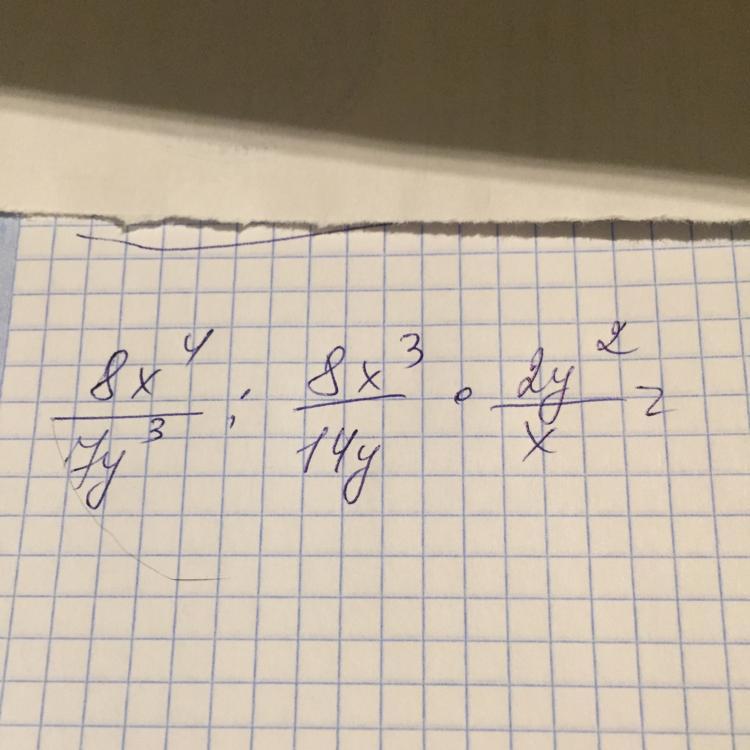 8x⁴/7y³ : 8x³/14y · 2y²/x =